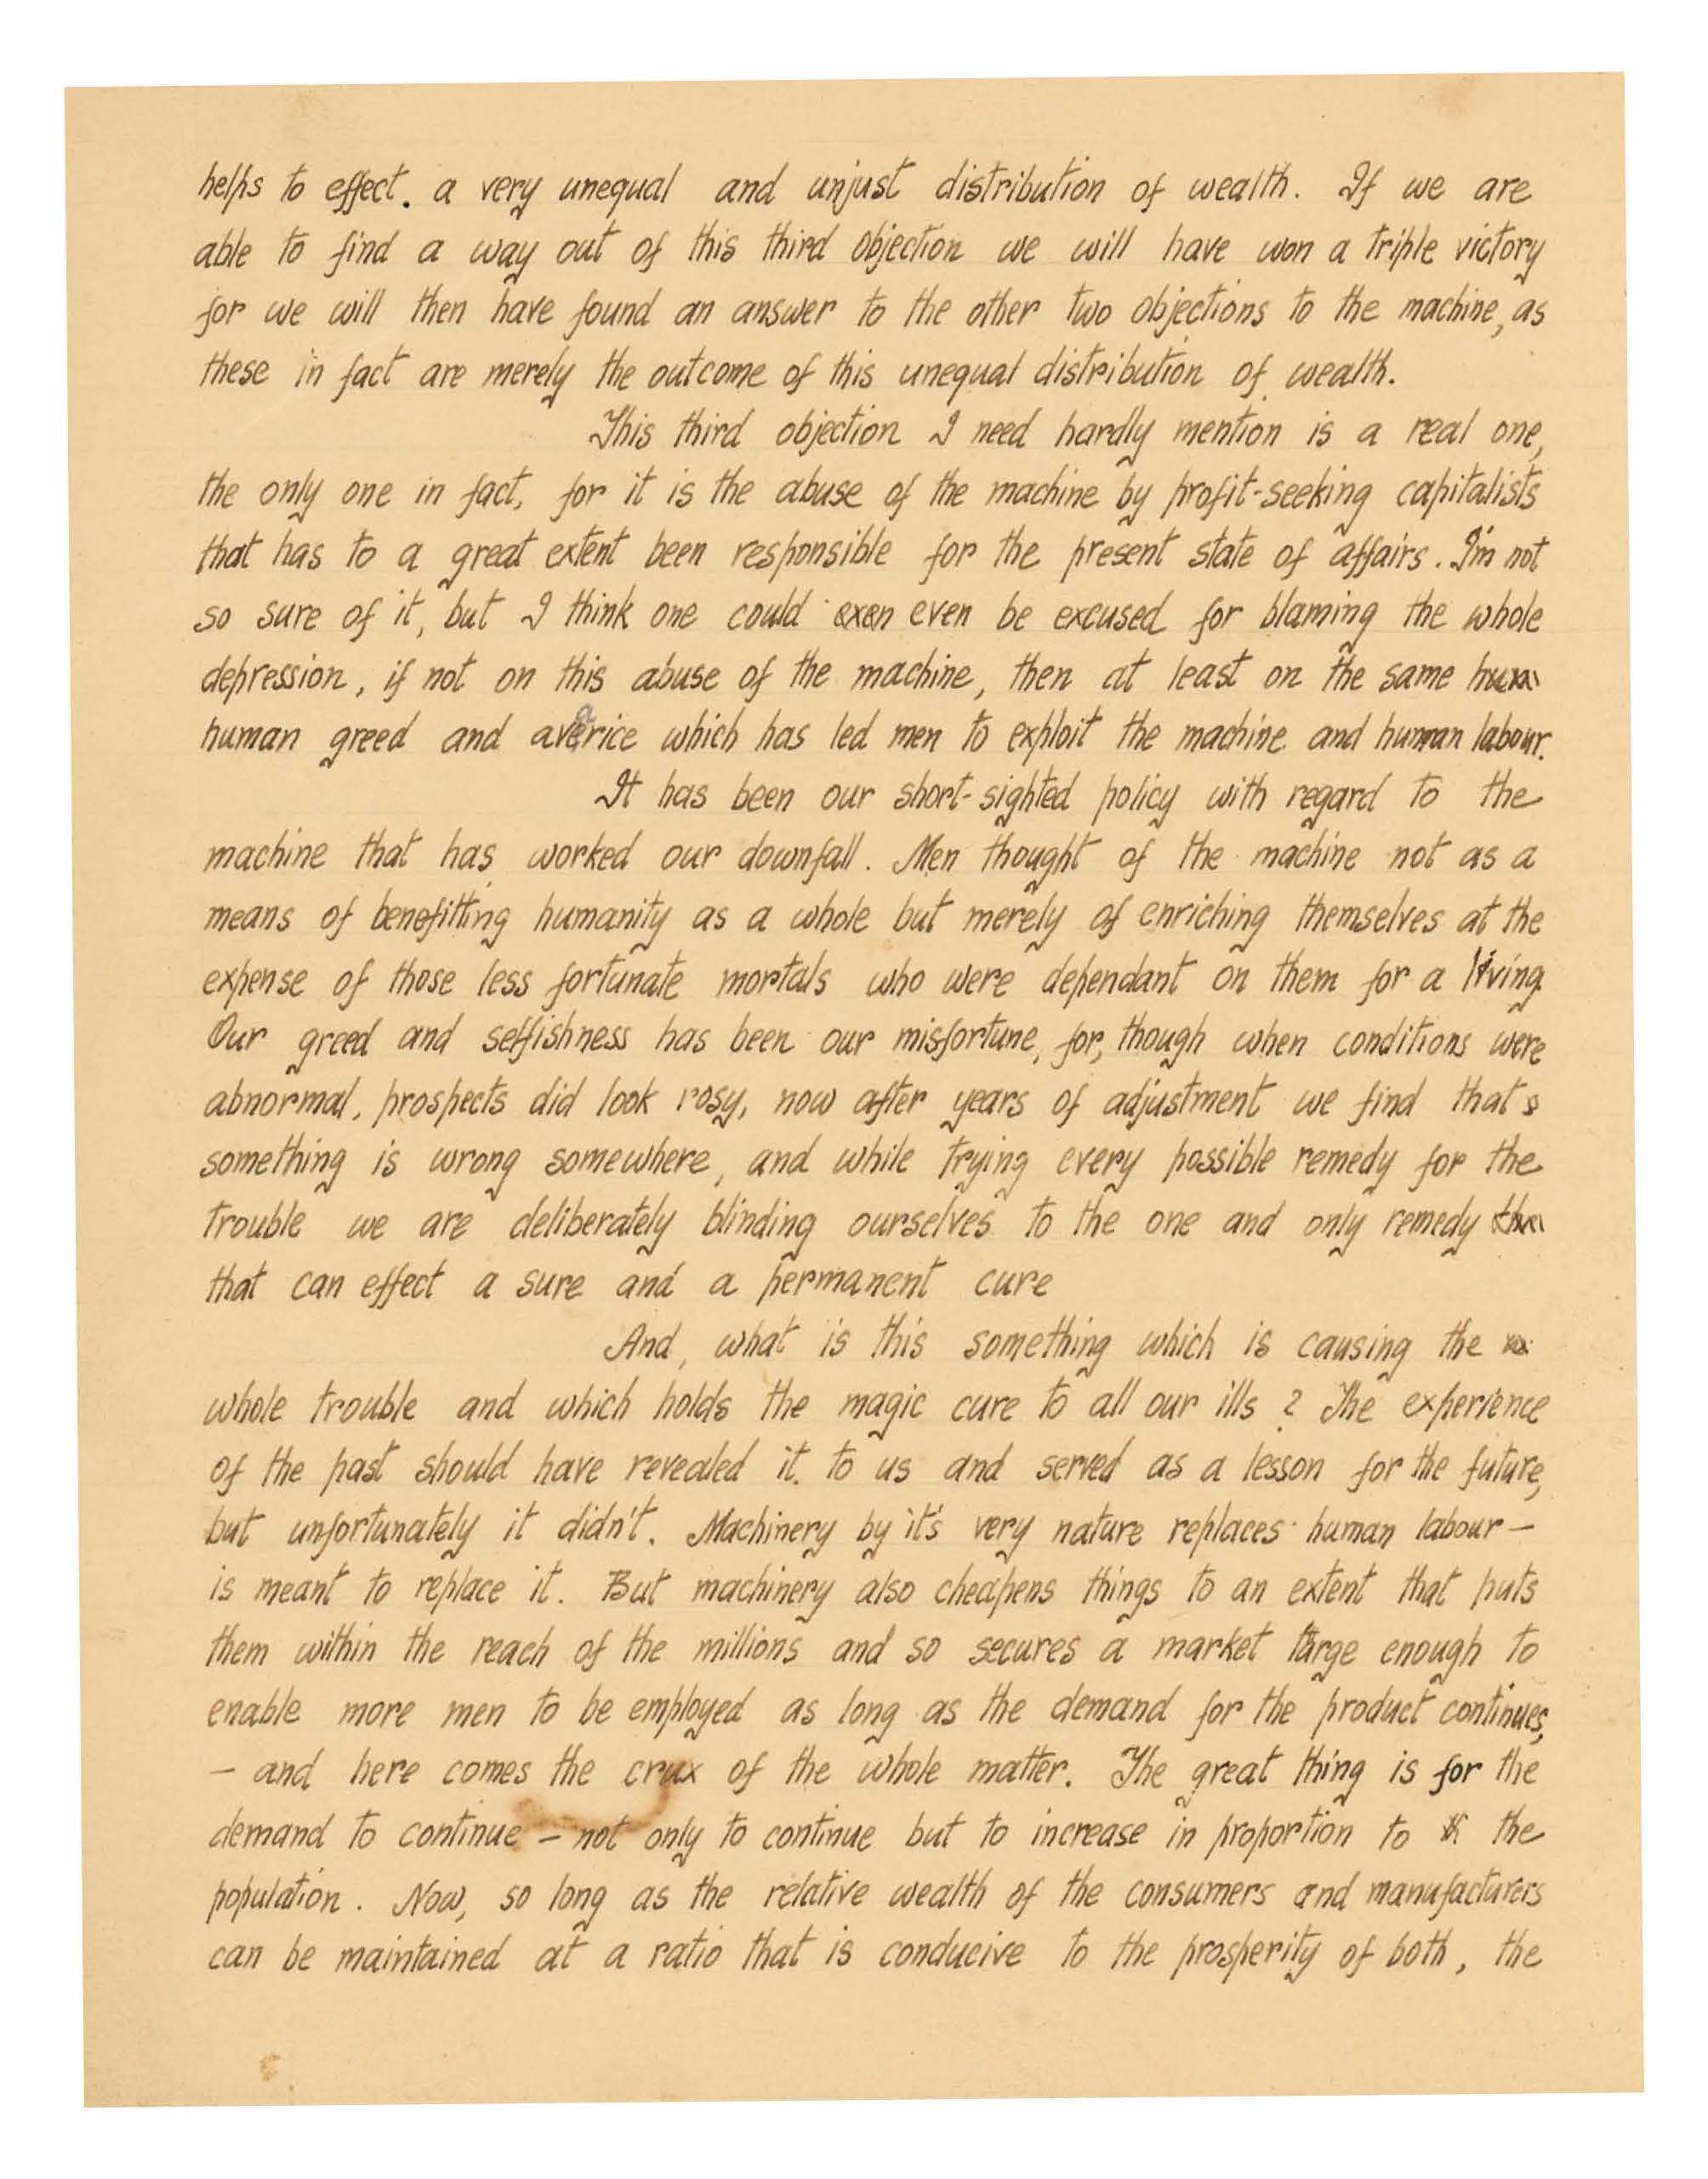 helps to effect. a very unequal and unjust distribution of wealth. If we are
able to find a way out of this third objection we will have won a triple victory
for we will then have found an answer to the other two objections to the machine, as
these in fact are merely the outcome of this unequal distribution of wealth.
This third objection I need hardly mention is a real one,
the only one in fact, for it is the abuse of the machine by profit-seeking capitalists
that has to a great extent been responsible for the present state of affairs. I'm not
so sure of it, but I think one could exen even be excused for blaming the whole
depression, if not on this abuse of the machine, then at least on the same hum
human greed and avarice which has led men to exploit the machine and human labour.
It has been our short-sighted policy with regard to the
machine that has worked our downfall. Men thought of the machine not as a
means of benefitting humanity as a whole but merely of enriching themselves at the
expense of those less fortunate mortals who were dependant on them for a living
Our greed and selfishness has been our misfortune, for, though when conditions were
abnormal, prospects did look rosy, now after years of adjustment we find that s
something is wrong somewhere, and while trying every possible remedy for the
trouble we are deliberately blinding ourselves to the one and only remedy tha
that can effect a sure and a permanent cure
And, what is this something which is causing the
whole trouble and which holds the magic cure to all our ills ? The experience
of the past should have revealed it. to us and served as a lesson for the future,
but unfortunately it didn't. Machinery by it's very nature replaces human labour —
is meant to replace it. But machinery also cheapens things to an extent that puts
them within the reach of the millions and so secures a market large enough to
enable more men to be employed as long as the demand for the product continues,
— and here comes the crux of the whole matter. The great thing is for the
demand to continue — not only to continue but to increase in proportion to th the
population. Now, so long as the relative wealth of the consumers and manufacturers
can be maintained at a ratio that is conducive to the prosperity of both, the